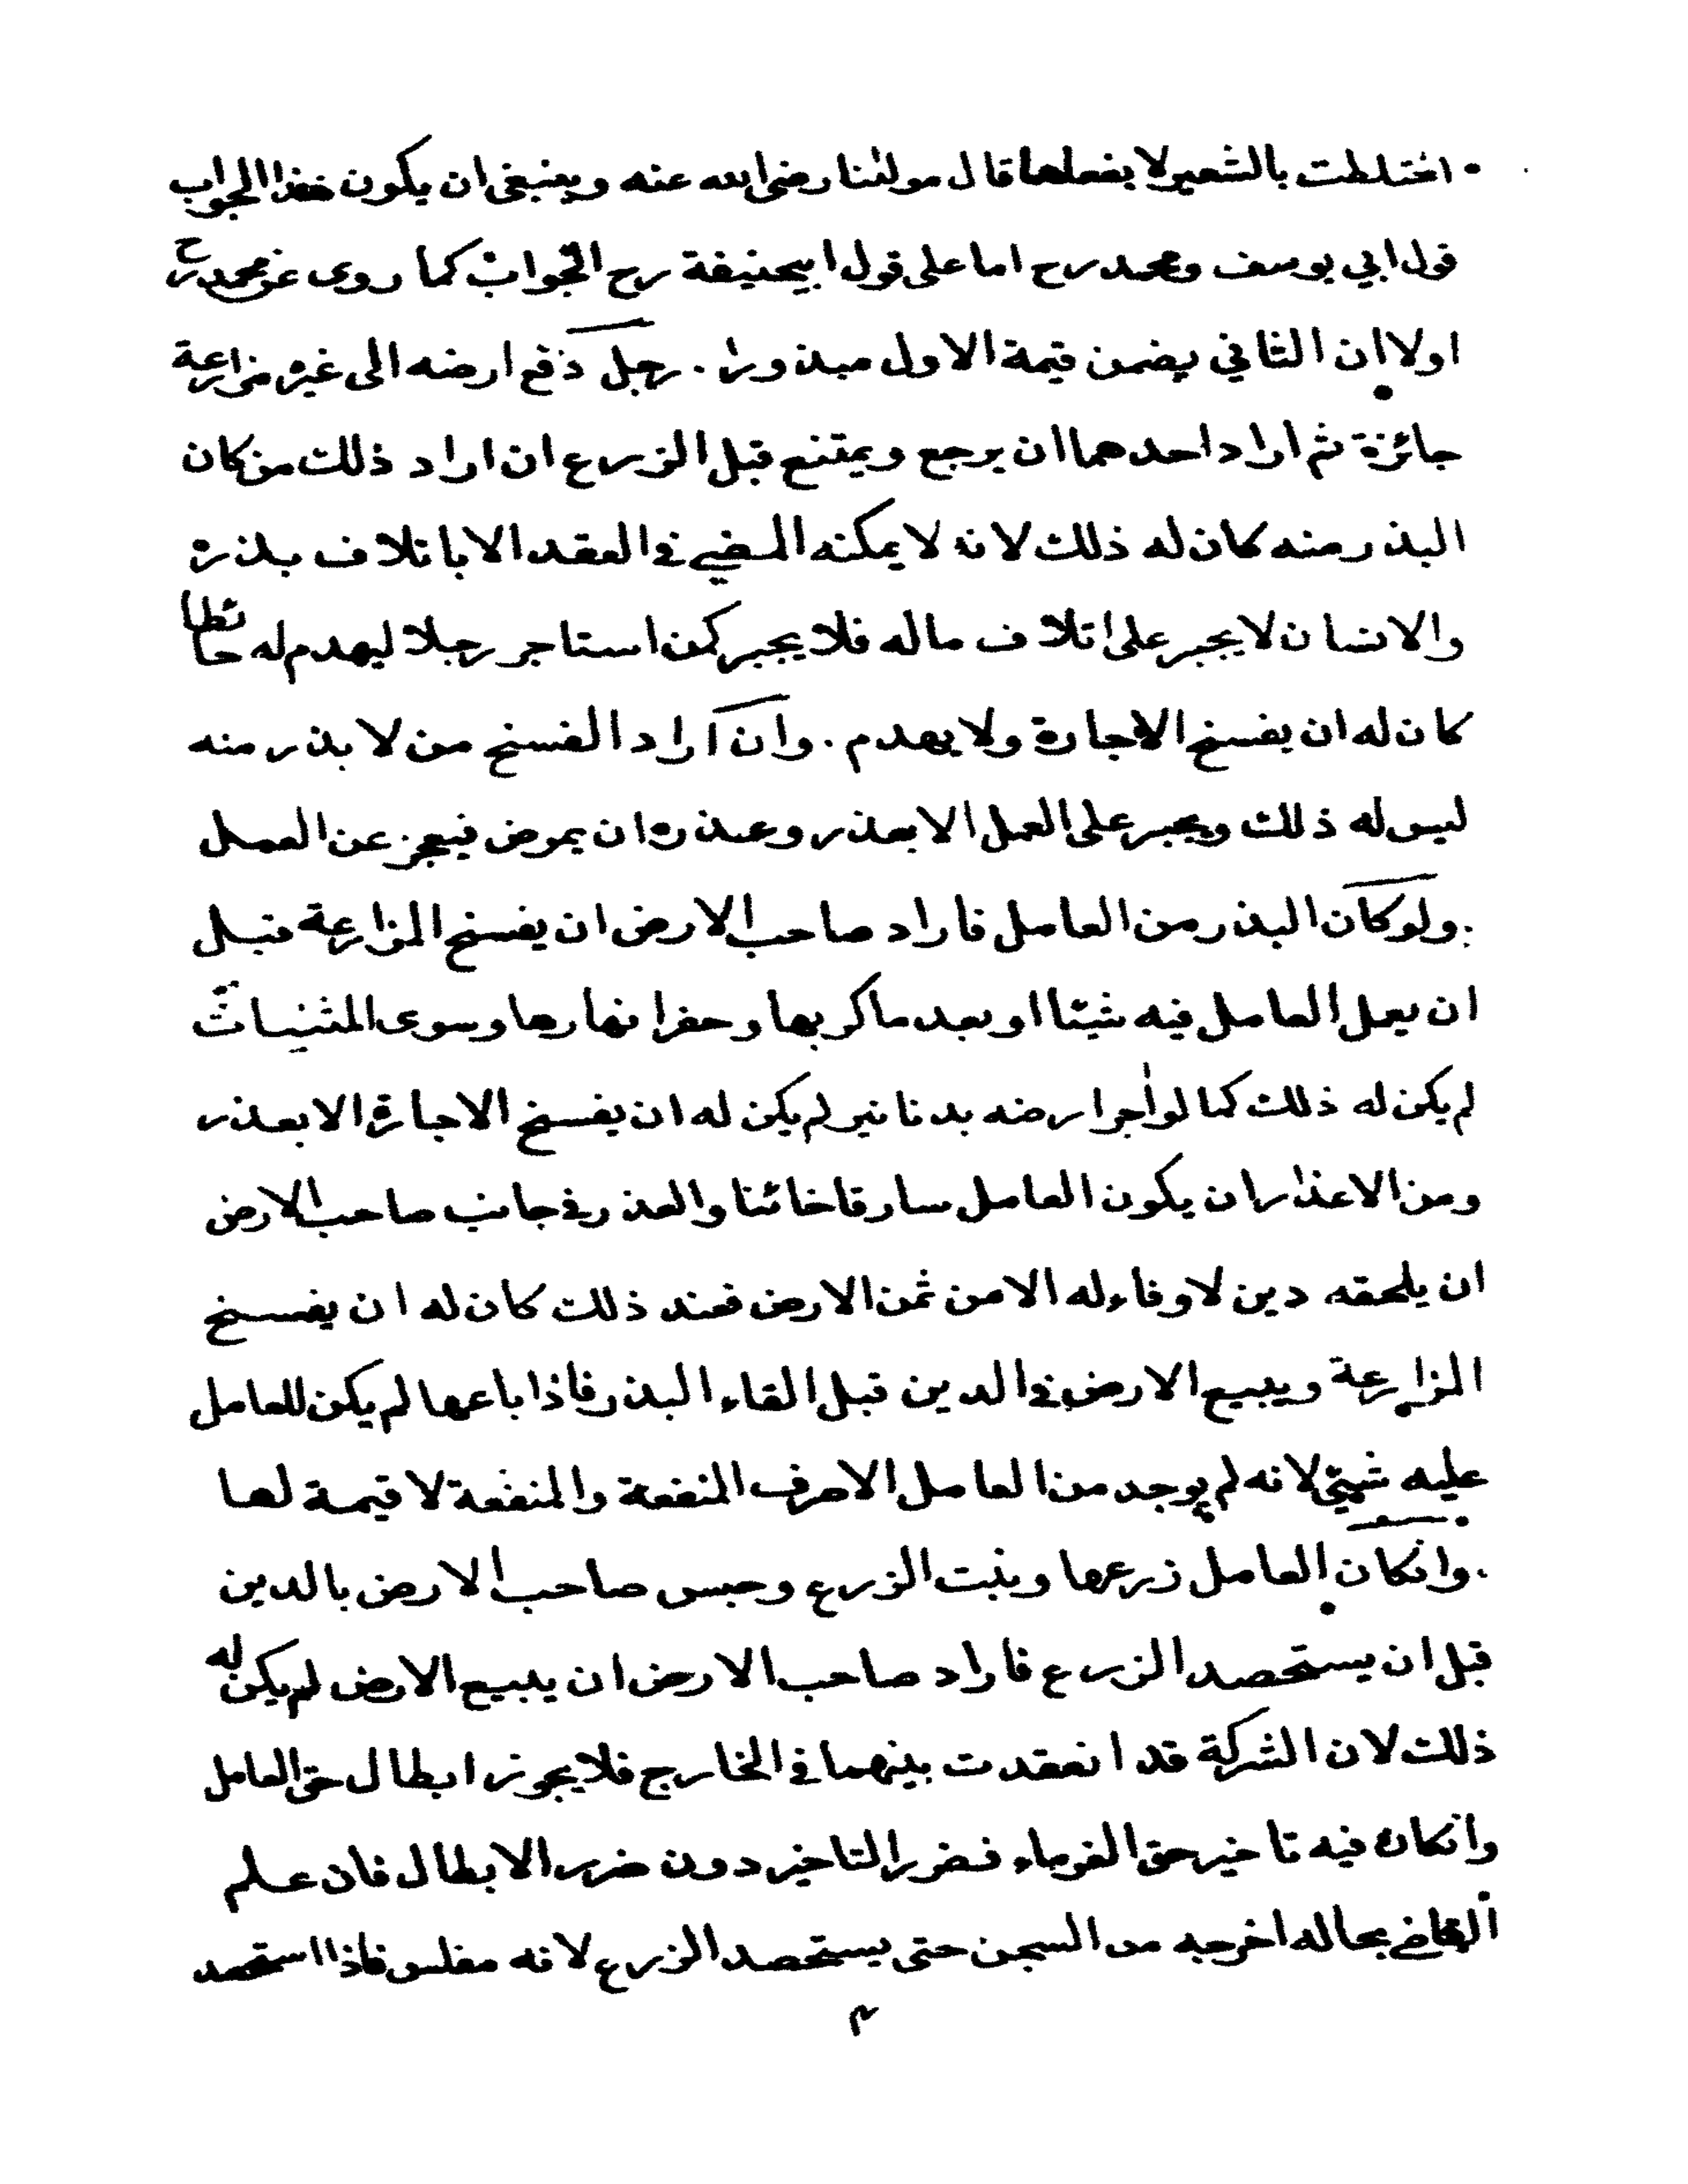 اختلطت بالشعير لا بفعلها قال مولٰنا رضي الله عنه وينبغي ان يكون هذا الجواب
قول ابي يوسف ومحمد رح اما على قول ابيحنيفة رح الجواب كما روى عن محمد رح
اولا ان الثاني يضمن قيمة الاول مبذورا . رجل دفع ارضه الى غيره مزارعة
جائزة ثم اراد احدهما ان يرجع ويمتنع قبل الزرع ان اراد ذلك من كان
البذر منه كان له ذلك لانه لا يمكنه المضي في العقد الا باتلاف بذره
والانسان لا يجبر على اتلاف ماله فلا يجبر كمن استاجر رجلا ليهدم له حائطا
كان له ان يفسخ الاجارة ولا يهدم . وان اراد الفسخ من لا بذر منه
ليس له ذلك ويجبر على العمل الا بعذر وعذره ان يمرض فيعجز عن العمل
. ولو كان البذر من العامل فاراد صاحب الارض ان يفسخ المزارعة قبل
ان يعمل العامل فيه شيئا او بعد ما كربها وحفر انهارها وسوى المثنيات
لم يكن له ذلك كما لو اجر ارضه بدنانير لم يكن له ان يفسخ الاجارة الا بعذر
ومن الاعذار ان يكون العامل سارقا خائنا والعذر في جانب صاحب الارض
ان يلحقه دين لا وفاء له الا من ثمن الارض فعند ذلك كان له ان يفسخ
المزارعة ويبيع الارض في الدين قبل القاء البذر فاذا باعها لم يكن للعامل
عليه شيئ لانه لم يوجد من العامل الا صرف المنفعة والمنفعة لا قيمة لها
. وانكان العامل زرعها ونبت الزرع وحبس صاحب الارض بالدين
قبل ان يستحصد الزرع فاراد صاحب الارض ان يبيع الارض لم يكن له
ذلك لان الشركة قد انعقدت بينهما في الخارج فلا يجوز ابطال حق العامل
وانكان فيه تاخير حق الغرماء فضرر التاخير دون ضرر الابطال فان علم
القاضي بحاله اخرجه من السجن حتى يستحصد الزرع لانه مفلس فاذا استحصد